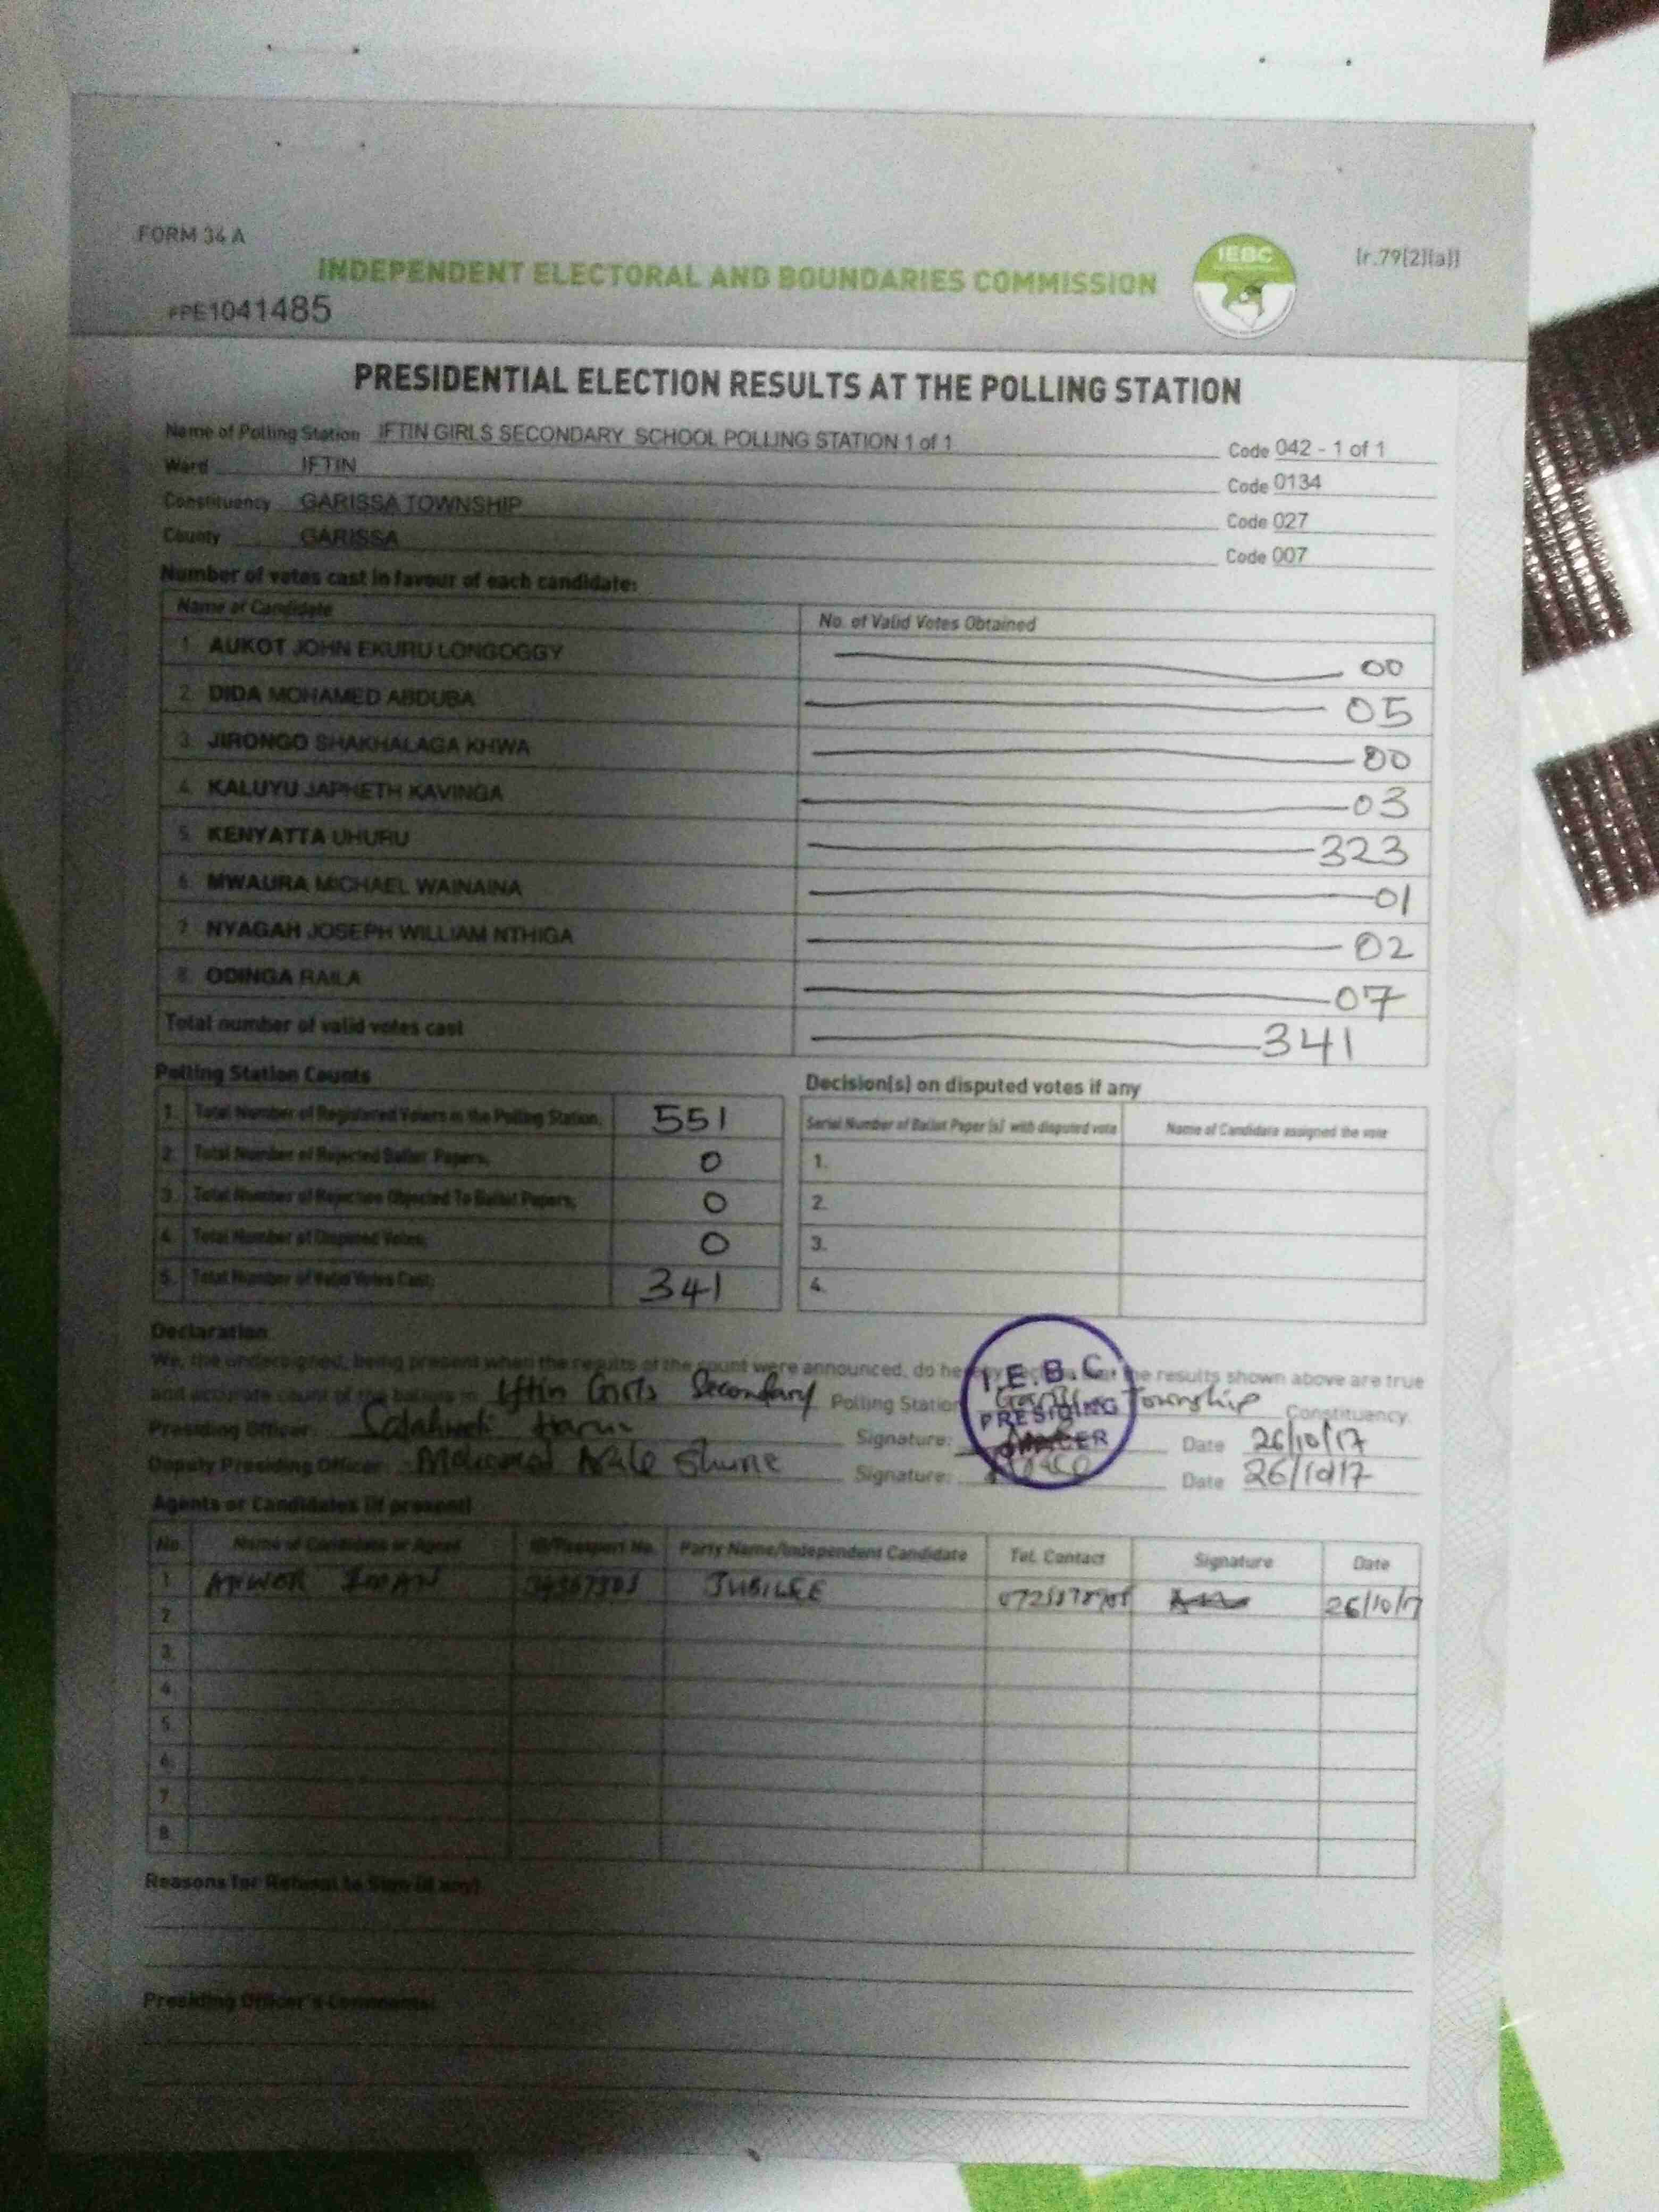 FORM 34 A
[r.79(2)(a)]
IEBC
INDEPENDENT ELECTORAL AND BOUNDARIES COMMISSION
PE1041485
PRESIDENTIAL ELECTION RESULTS AT THE POLLING STATION
Name of Polling Station IFTIN GIRLS SECONDARY SCHOOL POLLING STATION 1 of 1 Code 042 - 1 of 1
Ward IFTIN Code 0134
Constituency GARISSA TOWNSHIP Code 027
County GARISSA Code 007
Number of votes cast in favour of each candidate:
Name of Candidate No. of Valid Votes Obtained
1. AUKOT JOHN EKURU LONGOGGY 00
2. DIDA MOHAMED ABDUBA 05
3. JIRONGO SHAKHALAGA KHWA 00
4. KALUYU JAPHETH KAVINGA 03
5. KENYATTA UHURU 323
6. MWAURA MICHAEL WAINAINA 01
7. NYAGAH JOSEPH WILLIAM NTHIGA 02
8. ODINGA RAILA 07
Total number of valid votes cast 341
Polling Station Counts
1. Total Number of Registered Voters in the Polling Station. 551
2. Total Number of Rejected Ballot Papers. 0
3. Total Number of Rejection Objected To Ballot Papers. 0
4. Total Number of Disputed Votes. 0
5. Total Number of Valid Votes Cast: 341
Decision(s) on disputed votes if any
Serial Number of Ballot Paper (s) with disputed vote Name of Candidate assigned the vote
1.
2.
3.
4.
Declaration
We, the undersigned, being present when the results of the count were announced, do hereby the results shown above are true
and accurate count of the ballots in Iftin Girls Secondary Polling Station Township Constituency.
I.E.B.C
PRESIDING
OFFICER
Presiding Officer: Signature: Date 26/10/17
Deputy Presiding Officer: Shune Signature: Date 26/10/17
Agents or Candidates (if present)
No. Name of Candidate or Agent ID/Passport No. Party Name/Independent Candidate Tel. Contact Signature Date
1 JUBILEE 26/10/17
2.
3.
4.
5.
6.
7.
8.
Reasons for Refusal to Sign (if any)
Presiding Officer's Comments: